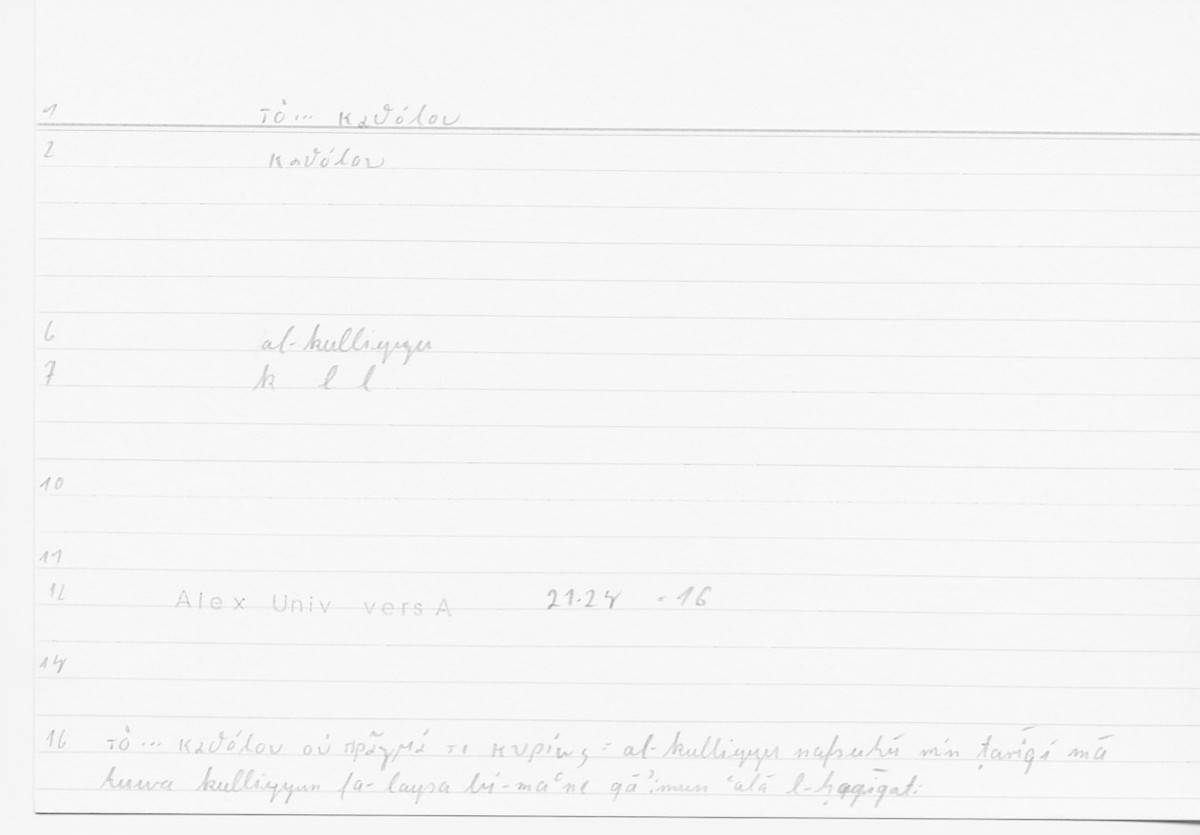 1 τὸ... καθόλου
2 καθόλου
6 al-kulliyyu
7 k l l
10
11
12 Alex Univ vers A 21.24 - 16
14
16 τὸ... καθόλου οὐ πρᾶγμά τι κυρίως = al-kulliyyu nafsuhū min ṭarīqi mā
huwa kulliyyun fa-laysa bi-maʿne qāʾimun ʿalā l-ḥaqīqati